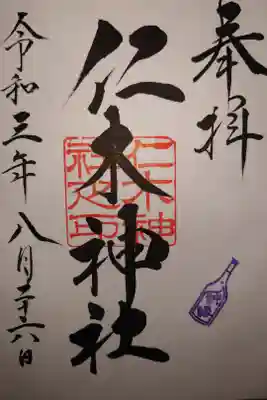 奉拝
仁木神社
仁木神
社之印
令和三年八月二十六日